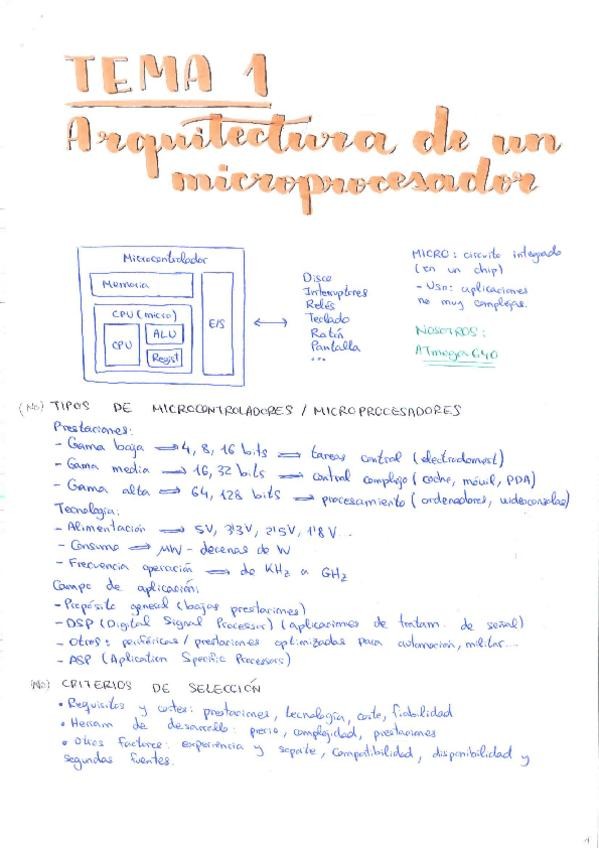 TEMA 1
Arquitectura de un
microprocesador
Microcontrolador
Memoria
CPU (micro)
CPU
ALU
Regist
E/S
Disco
Interruptores
Relés
Teclado
Ratón
Pantalla
...
MICRO: circuito integrado
(en un chip)
- Uso: aplicaciones
no muy complejas.
NOSOTROS:
ATmega 640
(No) TIPOS DE MICROCONTROLADORES / MICROPROCESADORES
Prestaciones:
- Gama baja → 4, 8, 16 bits → tareas control (electrodomest)
- Gama media → 16, 32 bits → control complejo (coche, móvil, PDA)
- Gama alta → 64, 128 bits → procesamiento (ordenadores, videoconsolas)
Tecnología:
- Alimentación → 5V, 3'3V, 2'5V, 1'8V...
- Consumo → μW - decenas de W
- Frecuencia operación → de KHz a GHz
Campo de aplicación:
- Propósito general (bajas prestaciones)
- DSP (Digital Signal Processor) (aplicaciones de tratam. de señal)
- Otros: periféricos / prestaciones optimizadas para automoción, militar...
- ASP (Aplication Specific Processors)
(No) CRITERIOS DE SELECCIÓN
• Requisitos y costes: prestaciones, tecnología, coste, fiabilidad
• Herram de desarrollo: precio, complejidad, prestaciones
• Otros factores: experiencia y soporte, compatibilidad, disponibilidad y
segundas fuentes.
1